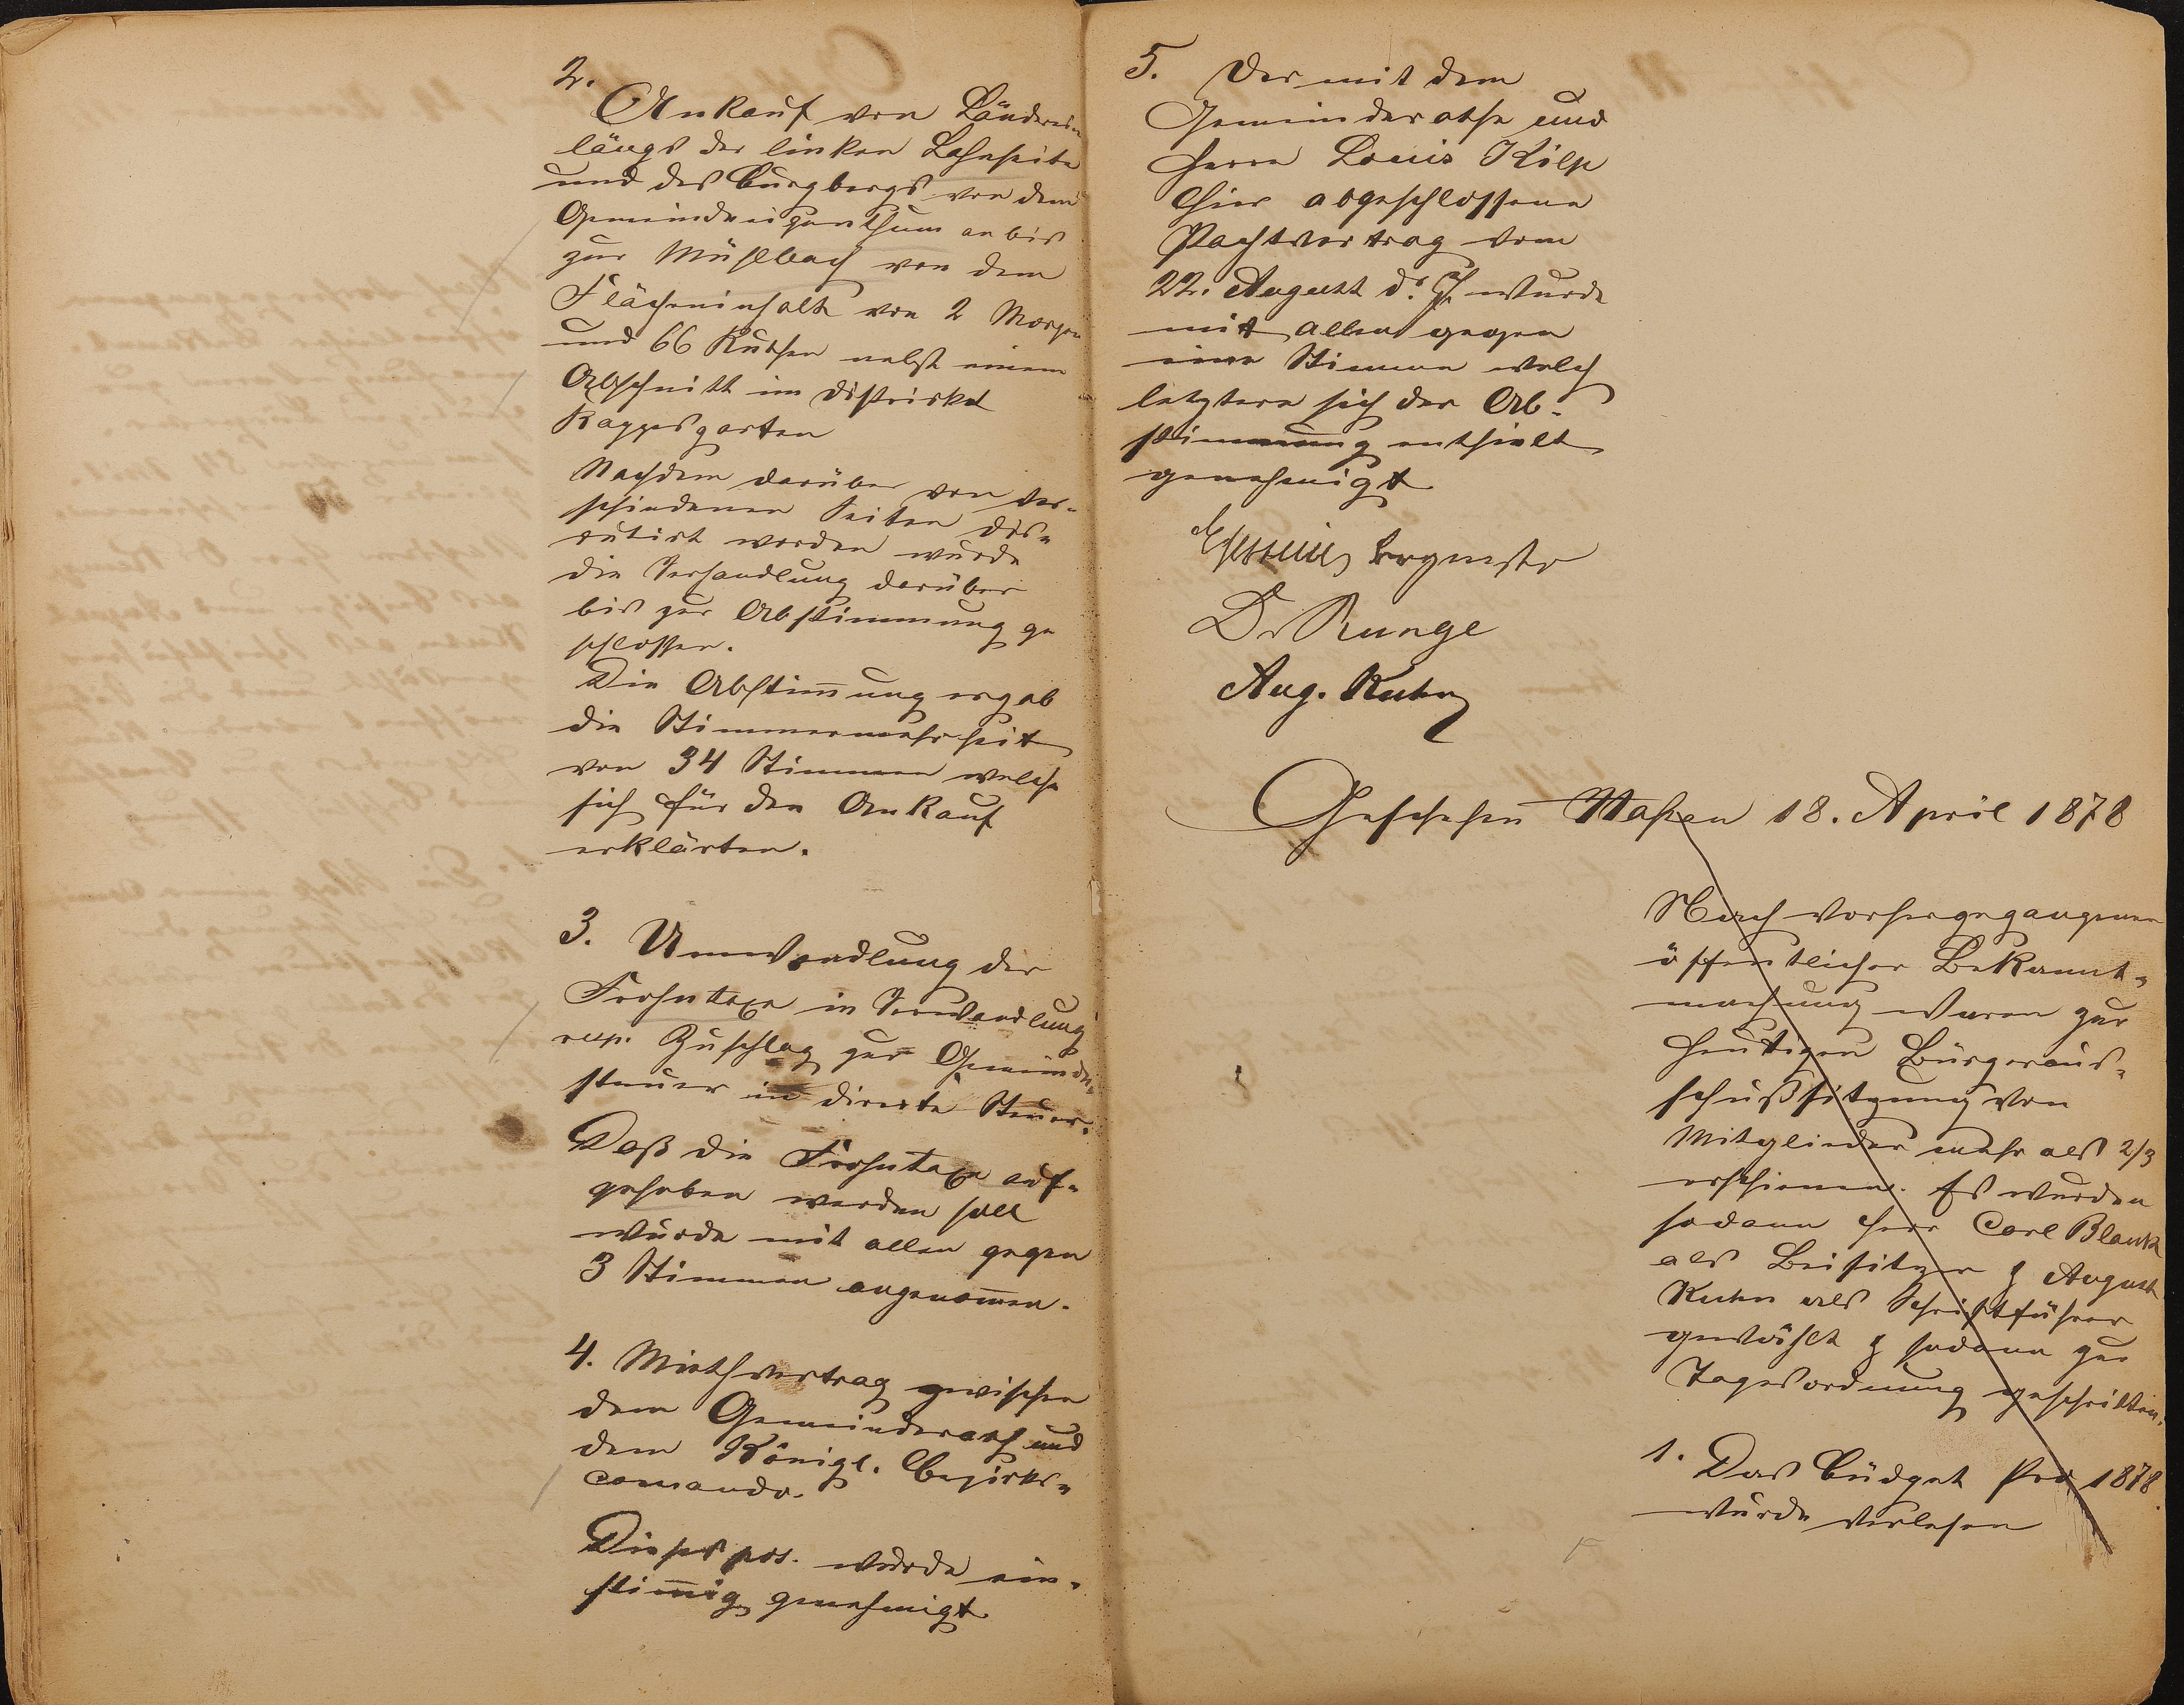 2.
Ankauf von Länderein
längs der linken Lahnseite
und des Burgbergs von dem
Gemeindeeigenthum an bis
zur Mühlbach von dem
Flächeninhalt von 2 Morgen
und 66 Ruthen nebst einem
Abschnitt im Distrikt
Kappesgarten
Nachdem darüber von ver-
schiedenen Seiten dis-
cutirt worden wurde
die Verhandlung darüber
bis zur Abstimmung ge
schlossen.
Die Abstim̄ung ergab
die Stimmenmehrheit
von 34 Stimmen welche
sich für den Ankauf
erklärten.
3. Umwandlung der
Frohntaxe in Verwandlung
resp. Zuschlag zur Gemeinde-
steuer in directe Steuer.
Daß die Frohntaxe auf-
gehoben werden soll
wurde mit allen gegen
3 Stimmen angenom̄en.
4. Miethvertrag zwischen
dem Gemeinderath und
dem Königl. Bezirks-
comando.
Dieses pos. wurde ein-
stim̄ig genehmigt
5. Der mit dem
Gemeinderathe und
Herrn Louis Kilp
hier abgeschlossene
Pachtvertrag vom
22. August d. J. wurde
mit allen gegen
eine Stimme welch
letztere sich der Ab-
stimmung enthielt
genehmigt
Brgmstr
Dr Runge
Aug. Kuhn
Geschehen Nassau 18. April 1878
Nach vorhergegangener
öffentlicher Bekannt-
machung waren zur
heutigen Bürgeraus-
schußsitzung von
Mitglieder mehr als 2/3
erschienen. Es wurden
sodann Herr Carl Blank
als Beisitzer & August
Kuhn als Schriftführer
gewählt & sodann zur
Tagesordnung geschritten.
1. Das Büdget pro 1878.
wurde verlesen